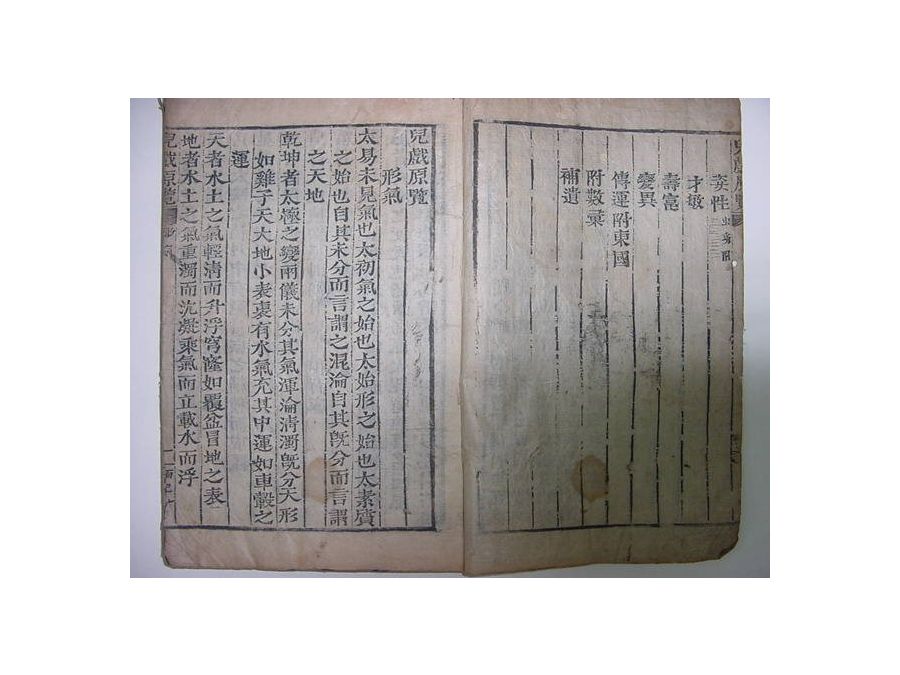 奕性
才敏
壽富
變異
傳運附東國
附數彙
補遺
兒戲原覽
形氣
太易未見氣也太初氣之始也太始形之始也太素質
之始也自其未分而言謂之混淪自其旣分而言謂
之天地
乾坤者太極之變兩儀未分其氣渾淪淸濁旣分天形
如雞子天大地小表裏有水氣充其中運如車轂之
運
天者水土之氣輕淸而升浮穹隆如覆盆冒地之表
地者水土之氣重濁而沉凝乘氣而立載水而浮
兒戲原覽